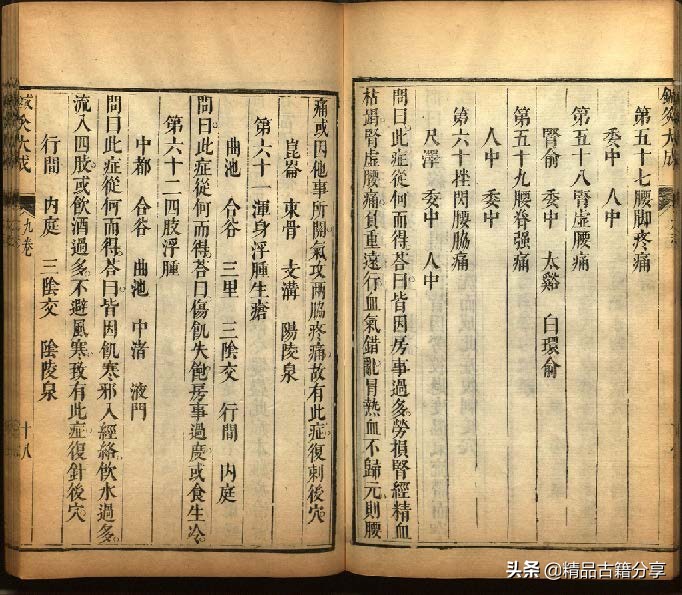 鍼灸大成
第五十七腰脚疼痛
委中 人中
第五十八腎虛腰痛
腎俞 委中 太谿 白環俞
第五十九腰脊强痛
人中 委中
第六十挫閃腰脇痛
尺澤 委中 人中
問曰此症從何而得荅曰皆因房事過多勞損腎經精血
枯竭腎虛腰痛負重遠行血氣錯亂冒熱血不歸元則腰
痛或因他事所關氣攻兩脇疼痛故有此症復刺後穴
崑崙 束骨 支溝 陽陵泉
第六十一渾身浮腫生瘡
曲池 合谷 三里 三陰交 行間 內庭
問曰此症從何而得荅曰傷飢失飽房事過度或食生冷
第六十二四肢浮腫
中都 合谷 曲池 中渚 液門
問曰此症從何而得荅曰皆因飢寒邪入經絡飲水過多
流入四肢或飲酒過多不避風寒致有此症復針後穴
行間 內庭 三陰交 陰陵泉
鍼灸大成 九卷 十八
头条 @精品古籍分享